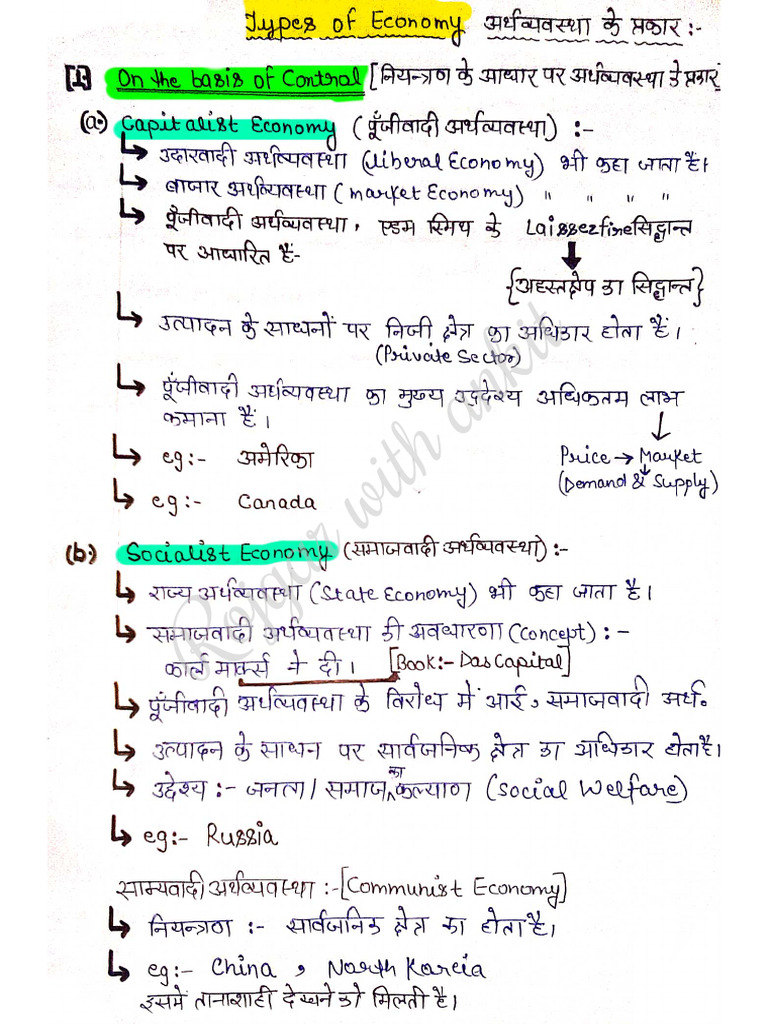 Types of Economy अर्थव्यवस्था के प्रकार :-
[1] On the basis of Control [नियन्त्रण के आधार पर अर्थव्यवस्था के प्रकार]
(a.) Capitalist Economy (पूँजीवादी अर्थव्यवस्था) :-
↳ उदारवादी अर्थव्यवस्था (liberal Economy) भी कहा जाता हैं।
↳ बाजार अर्थव्यवस्था (market Economy) " " " "
↳ पूँजीवादी अर्थव्यवस्था, एडम स्मिथ के Laissezfine सिद्धान्त
पर आधारित हैं-
{अहस्तक्षेप का सिद्धान्त}
↳ उत्पादन के साधनों पर निजी क्षेत्र का अधिकार होता हैं।
(Private Sector)
↳ पूँजीवादी अर्थव्यवस्था का मुख्य उद्देश्य अधिकतम लाभ
कमाना हैं।
↳ eg:- अमेरिका
Price → Market
(Demand & Supply)
↳ eg:- Canada
(b.) Socialist Economy (समाजवादी अर्थव्यवस्था) :-
↳ राज्य अर्थव्यवस्था (State Economy) भी कहा जाता है।
↳ समाजवादी अर्थव्यवस्था की अवधारणा (Concept) :-
कार्ल मार्क्स ने दी। [Book:- Das Capital]
↳ पूँजीवादी अर्थव्यवस्था के विरोध में आई, समाजवादी अर्थ॰
↳ उत्पादन के साधन पर सार्वजनिक क्षेत्र का अधिकार होता है।
↳ उद्देश्य :- जनता / समाज का कल्याण (Social Welfare)
↳ eg:- Russia
साम्यवादी अर्थव्यवस्था :- [Communist Economy]
↳ नियन्त्रण :- सार्वजनिक क्षेत्र का होता है।
↳ eg:- China, North Karcia
इसमें तानाशाही देखने को मिलती है।
Rojgar with ankit